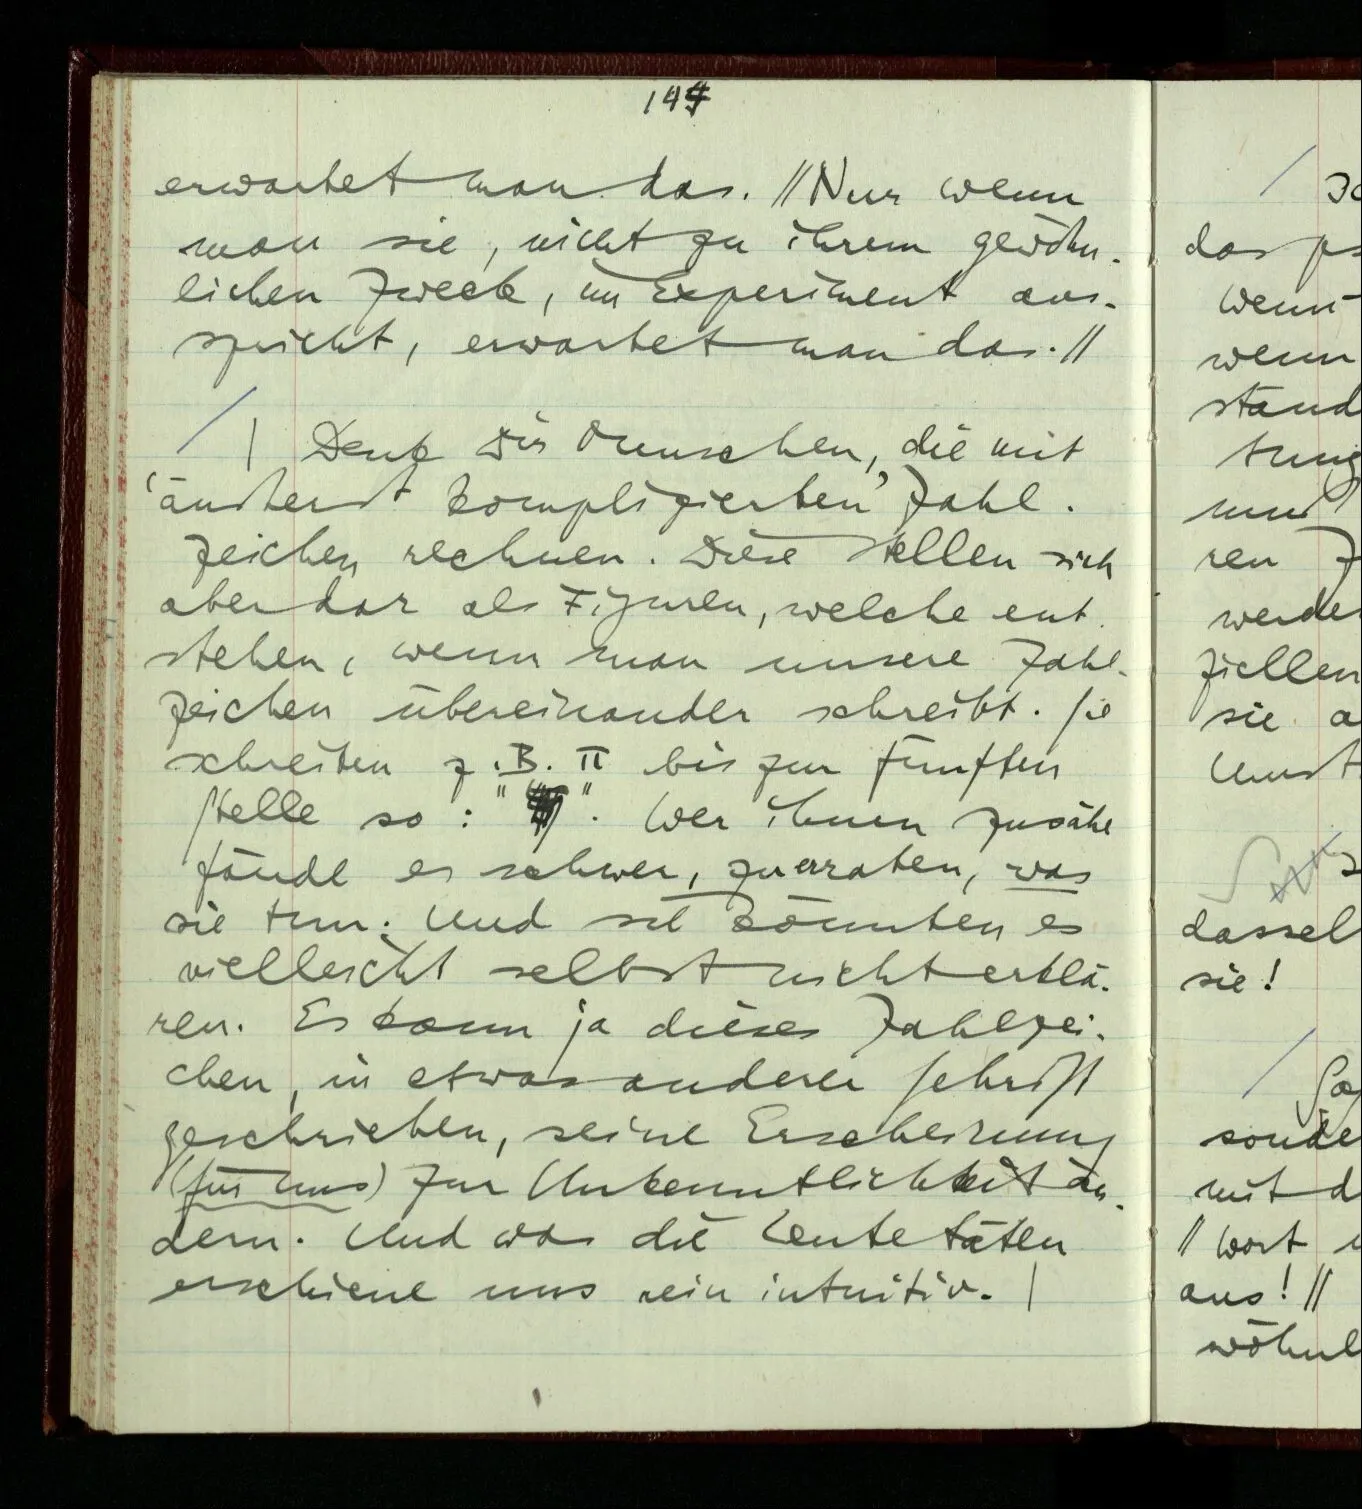 144
erwartet man das. //Nur wenn
man sie, nicht zu ihrem gewöhn-
lichen Zweck, im Experiment aus-
spricht, erwartet man das.//
/ | Denk Dir Menschen, die mit
‘äusserst komplizierten’ Zahl-
zeichen rechnen. Diese stellen sich
aber dar als Figuren, welche ent-
stehen, wenn man unsere Zahl-
zeichen übereinander schreibt. Sie
schreiben z.B. π bis zur fünften
Stelle so: " ". Wer ihnen zusähe
fände es schwer, zu erraten, was
sie tun. Und sie könnten es
vielleicht selbst nicht erklä-
ren. Es kann ja dieses Zahlzei-
chen, in etwas anderer Schrift
geschrieben, seine Erscheinung
(für uns) zur Unkenntlichkeit än-
dern. Und was die Leute täten
erschiene uns rein intuitiv. |
/
das
wenn
wenn
ren
sie
dassel
sie!
/
mit d
// Wort
aus! //
wöhnl